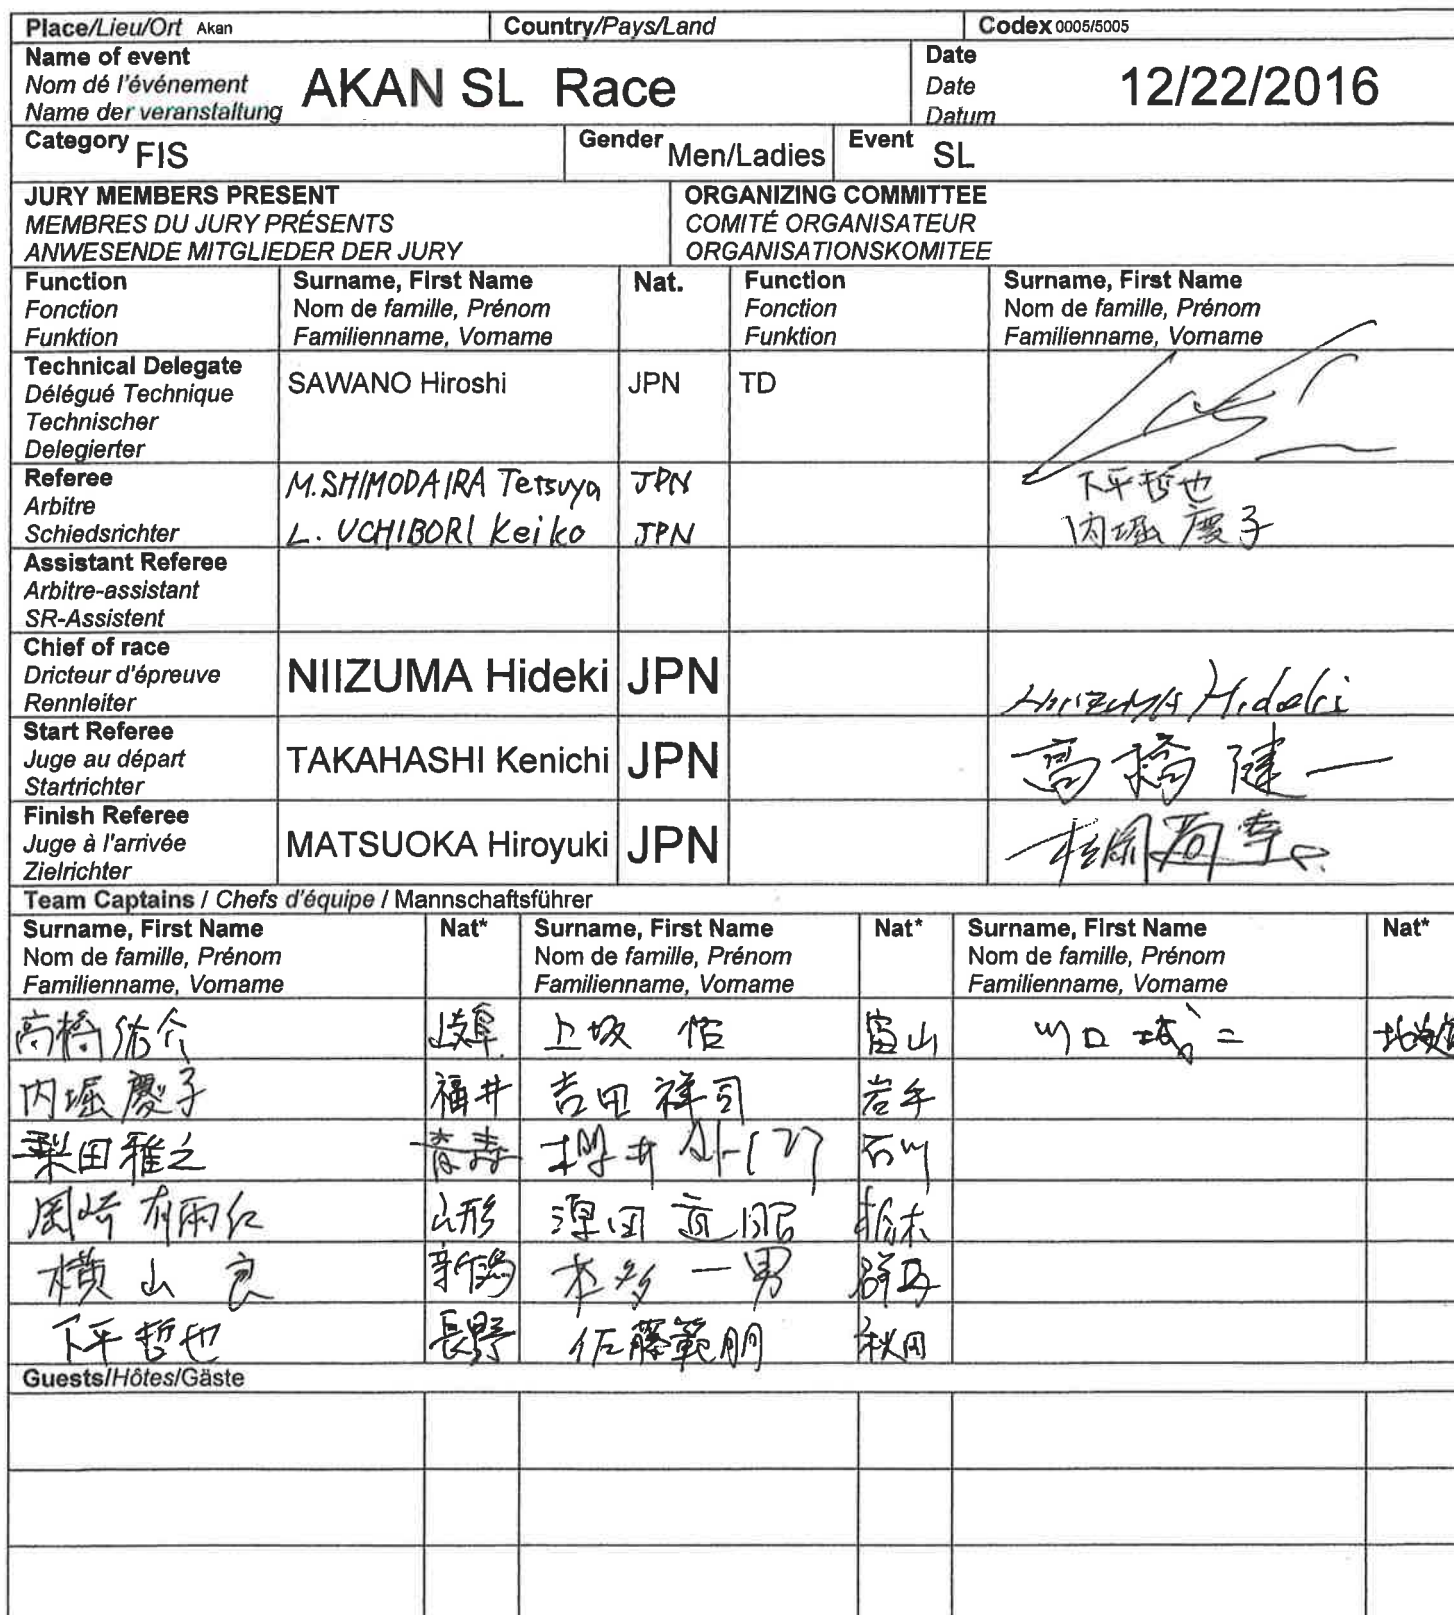 Place/Lieu/Ort Akan Country/Pays/Land Codex 0005/5005
Name of event
Nom dé l'événement
Name der veranstaltung
AKAN SL Race
Date
Date
Datum
12/22/2016
Category FIS Gender Men/Ladies Event SL
JURY MEMBERS PRESENT
MEMBRES DU JURY PRÉSENTS
ANWESENDE MITGLIEDER DER JURY
ORGANIZING COMMITTEE
COMITÉ ORGANISATEUR
ORGANISATIONSKOMITEE
Function
Fonction
Funktion
Surname, First Name
Nom de famille, Prénom
Familienname, Vorname
Nat.
Function
Fonction
Funktion
Surname, First Name
Nom de famille, Prénom
Familienname, Vorname
Technical Delegate
Délégué Technique
Technischer
Delegierter
SAWANO Hiroshi JPN TD
Referee
Arbitre
Schiedsrichter
M.SHIMODAIRA Tetsuya JPN 下平哲也
L. UCHIBORI Keiko JPN 内堀慶子
Assistant Referee
Arbitre-assistant
SR-Assistent
Chief of race
Dricteur d'épreuve
Rennleiter
NIIZUMA Hideki JPN Hideki
Start Referee
Juge au départ
Startrichter
TAKAHASHI Kenichi JPN 高橋健一
Finish Referee
Juge à l'arrivée
Zielrichter
MATSUOKA Hiroyuki JPN
Team Captains / Chefs d'équipe / Mannschaftsführer
Surname, First Name
Nom de famille, Prénom
Familienname, Vorname
Nat*
Surname, First Name
Nom de famille, Prénom
Familienname, Vorname
Nat*
Surname, First Name
Nom de famille, Prénom
Familienname, Vorname
Nat*
高橋佑介 岐阜 上坂 富山 川口城二 北海道
内堀慶子 福井 吉田祥司 岩手
梨田雅之 青森 櫻井 石川
岡崎有雨仁 山形 栃木
横山良 新潟 本多一男 群馬
下平哲也 長野 佐藤範朋 秋田
Guests/Hôtes/Gäste